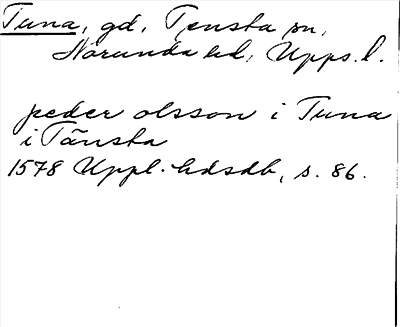 Tuna, gd, Tensta sn,
Norunda hd, Upps. l.
peder olsson i Tuna
i Tänsta
1578 Uppl. hdsdb, s. 86.